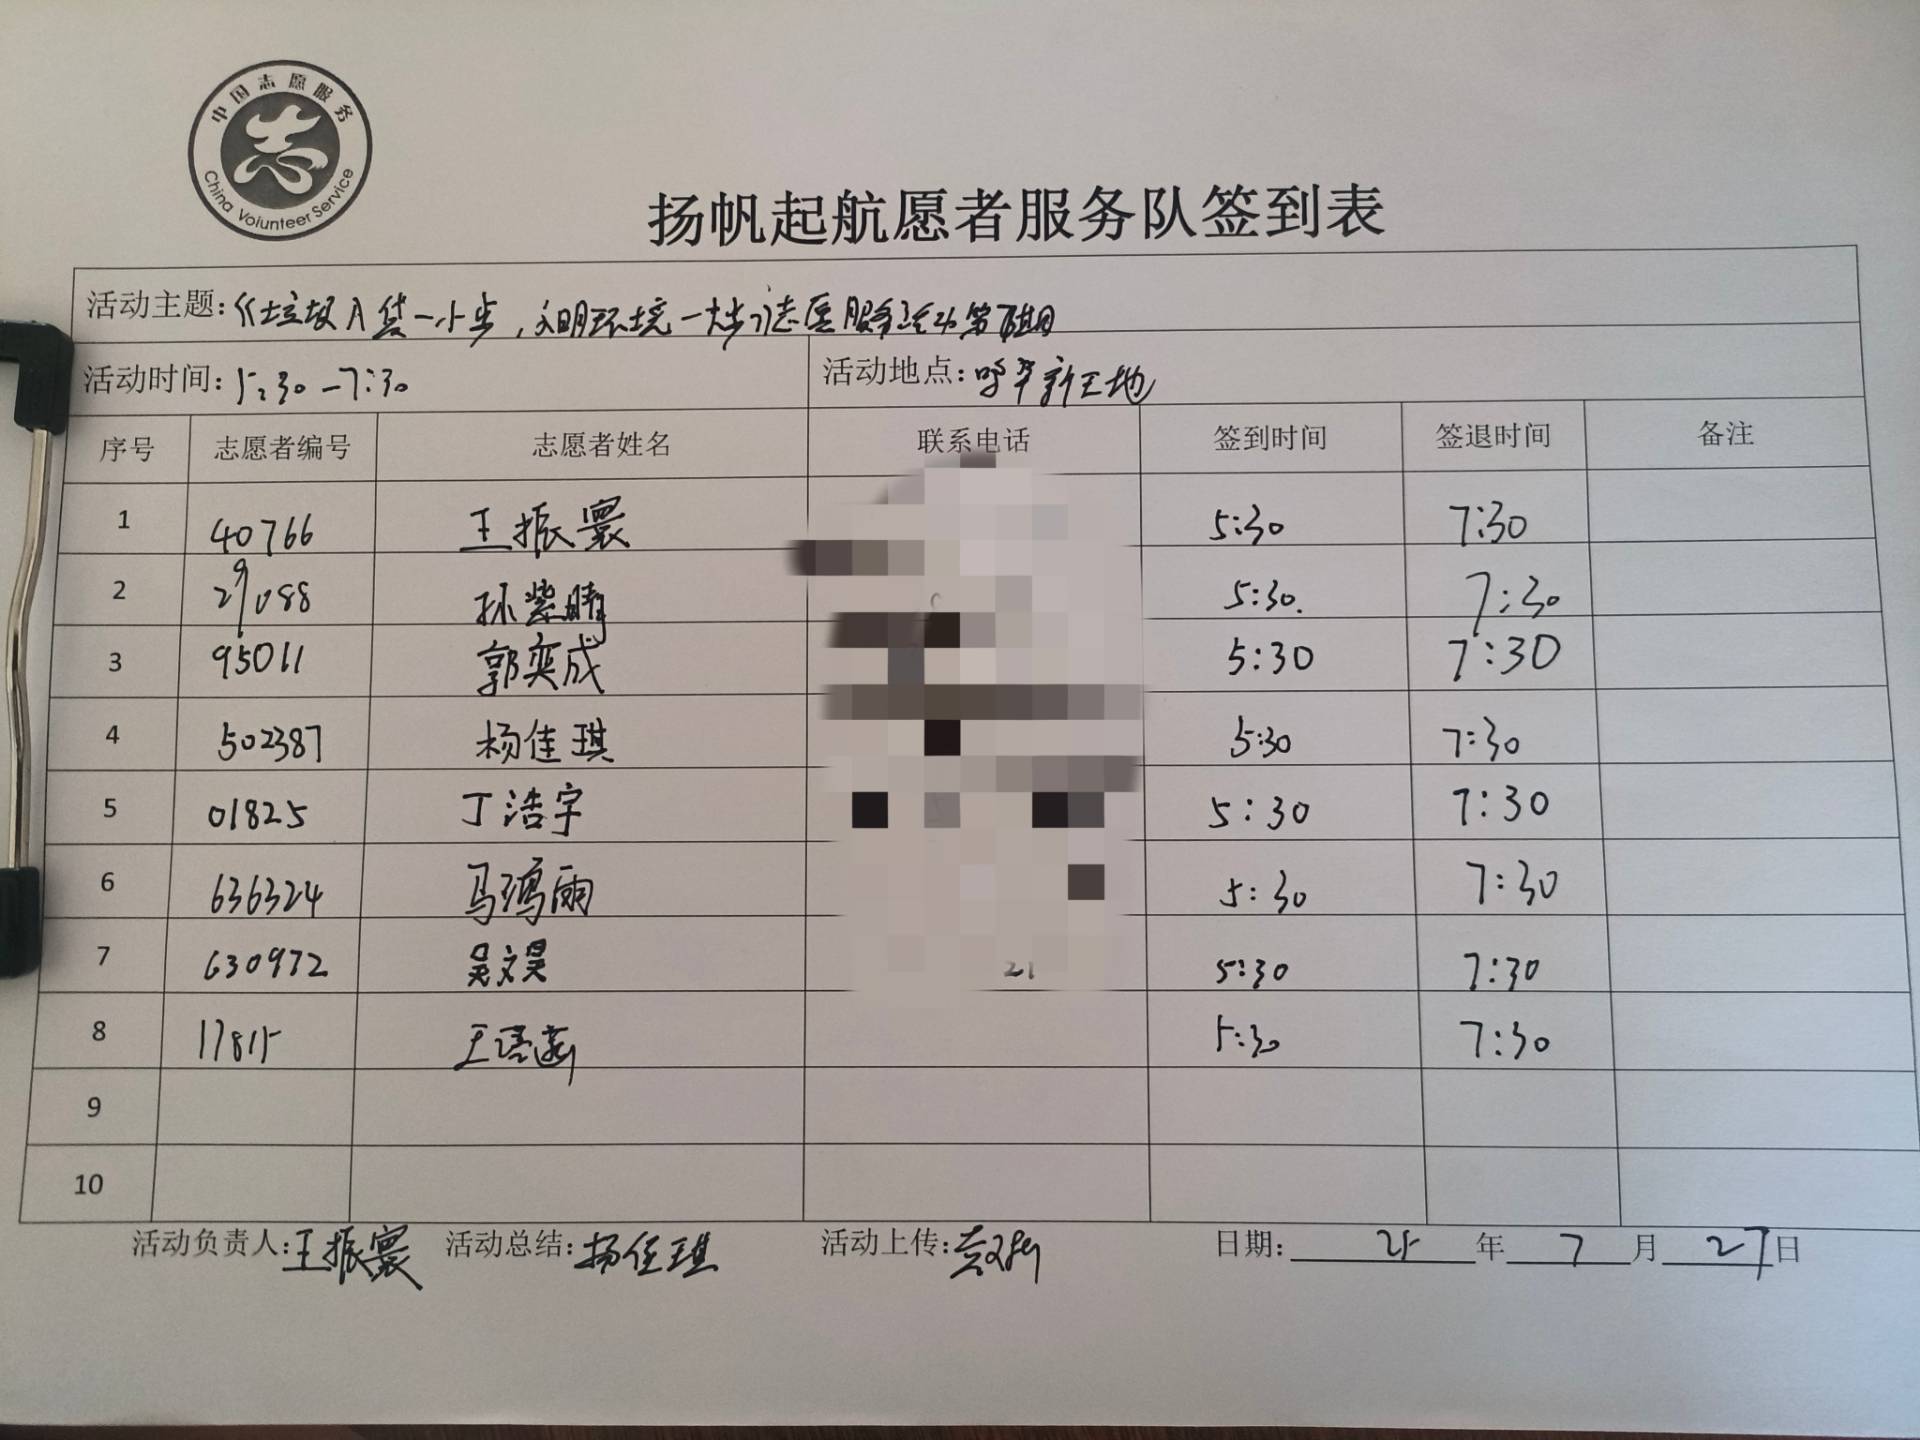 中国志愿服务
China Volunteer Service
扬帆起航愿者服务队签到表
活动主题:《垃圾入袋一小步,文明环境一大步》志愿服务活动第
活动时间:5:30-7:30 活动地点:新工地
序号 志愿者编号 志愿者姓名 联系电话 签到时间 签退时间 备注
1 40766 王振寰 5:30 7:30
2 29088 孙紫晴 5:30. 7:30
3 95011 郭奕成 5:30 7:30
4 502387 杨佳琪 5:30 7:30
5 01825 丁浩宇 5:30 7:30
6 636324 马鸿雨 5:30 7:30
7 630972 吴文昊 21 5:30 7:30
8 17815 王语 5:30 7:30
9
10
活动负责人:王振寰 活动总结:杨佳琪 活动上传: 日期: 25 年 7 月 27 日